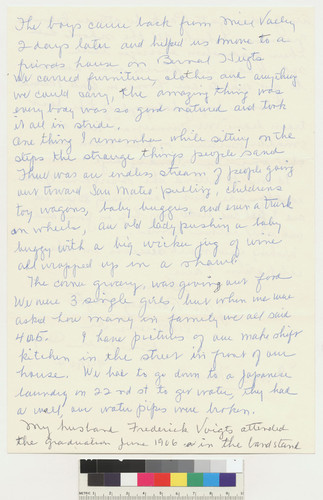 The boys came back from Mill Valley
2 days later and helped us move to a
friends house on Bernal Heigts
We carried furniture, clothes and anything
we could carry, the amazing thing was
every body was so good natured and took
it all in stride.
One thing I remember while sitting on the
steps the strange things people saved
There was an endless stream of people going
out toward San Mateo pulling, childrens
toy wagons, baby buggies, and even a trunk
on wheels, an old lady pushing a baby
buggy with a big wicker jug of wine
all wrapped up in a shawl.
The corner grocery, was giving out food
We were 3 single girls, but when we were
asked how many in family we all said
4 or 5. I have pictures of our make shift
kitchen in the street in front of our
house. We had to go down to a Japanese
laundry on 22nd st to get water, they had
a well, our water pipes were broken.
My husband Frederick Voigts attended
the graduation June 1906 in the bandstand